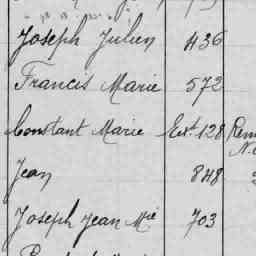 Joseph Julien 436
Francis Marie 572
Constant Marie Ext. 128
Jean 848
Joseph Jean Mie 703